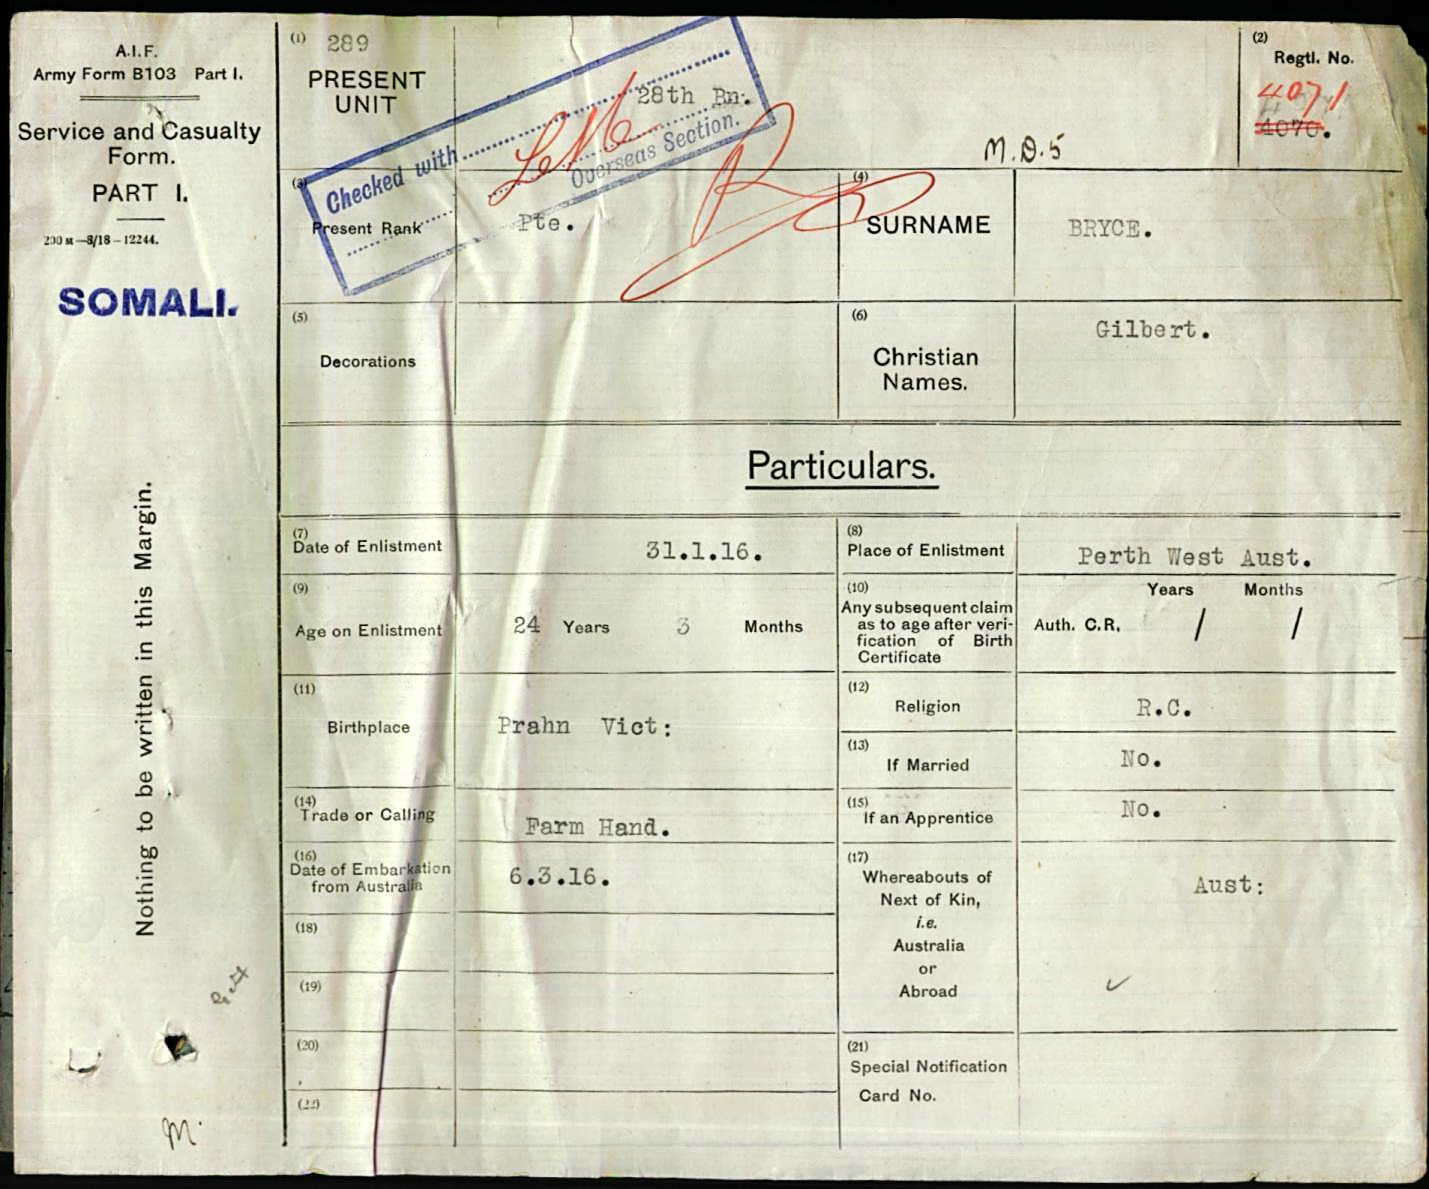 A.I.F.
Army Form B103 Part I.
Service and Casualty
Form.
PART I.
200 M—8/18—12244.
SOMALI.
Nothing to be written in this Margin.
M.
(1) 289
PRESENT
UNIT
28th Bn.
Checked with
Overseas Section.
M.D.5
(2)
Regtl. No.
4071
4070.
(3)
Present Rank
Pte.
(4)
SURNAME
BRYCE.
(5)
Decorations
(6)
Christian
Names.
Gilbert.
Particulars.
(7)
Date of Enlistment
31.1.16.
(8)
Place of Enlistment
Perth West Aust.
(9)
Age on Enlistment
24 Years 3 Months
(10)
Any subsequent claim
as to age after veri-
fication of Birth
Certificate
Years Months
Auth. C.R. / /
(11)
Birthplace
Prahn Vict:
(12)
Religion
R.C.
(13)
If Married
No.
(14)
Trade or Calling
Farm Hand.
(15)
If an Apprentice
No.
(16)
Date of Embarkation
from Australia
6.3.16.
(17)
Whereabouts of
Next of Kin,
i.e.
Australia
or
Abroad
Aust:
(18)
(19)
(20)
(21)
Special Notification
Card No.
(22)